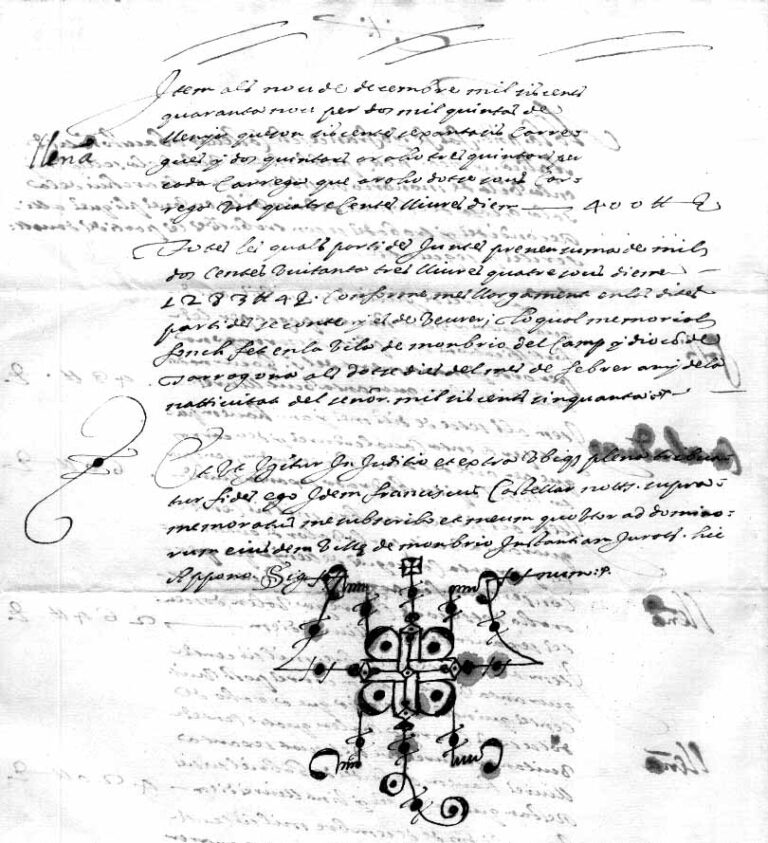 Item als nou de decembre mil siscents
quaranta nou per dos mil quintas de
llenya que son siscentes sexanta sis Carre-
gues y dos quintars a raho tres quintars per
cada Carrega que a raho dotze sous Car-
rega Val quatre Centes lliures diem 400 ll
Llenã
Totes les quals partides Juntes prenen suma de mil
dos Centes Vuitanta tres lliures quatre sous diem
1283 ll 4 Conforme mes llargament en les dites
partides se conte y es de veurer; Lo qual memorial
fonch fet en la Vila de monbrio del Camp y dioce de
Tarragona als dotze dies del mes de febrer any de la
nattivitat del senor mil siscents sinquanta
Et Vt Igitur In Juditio et extra Vbiq plena tribua-
tur fides ego Idem franciscus Castellar notts. supra-
memoratus me subscribo et meum quo Vtor ad domino-
rum eiusdem Ville de monbrio Instantiam Jurats. hic
Appono Sig num.